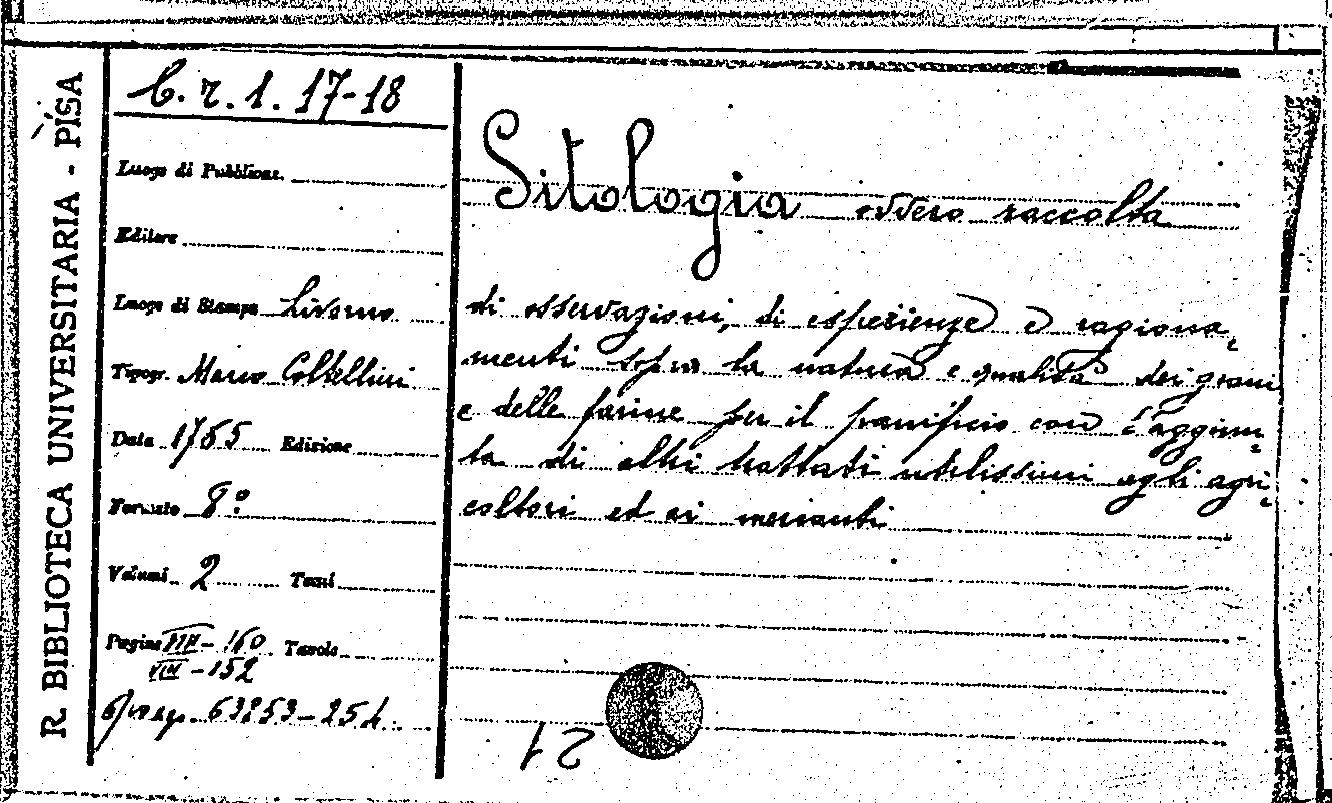 R. BIBLIOTECA UNIVERSITARIA - PISA
C. r. 1. 17-18
Luogo di Pubblicaz.
Editore
Luogo di Stampa Livorno
Tipogr. Marco Coltellini
Data 1765 Edizione
Formato 8º
Volumi 2 Tomi
Pagine VIII - 160 Tavole
VIII - 152
63253-254
Sitologia ovvero raccolta
di osservazioni, di esperienze e ragiona-
menti sopra la natura e qualità dei grani
e delle farine per il panificio con l'aggiun-
ta di altri trattati utilissimi agli agri-
coltori ed ai mercanti
21